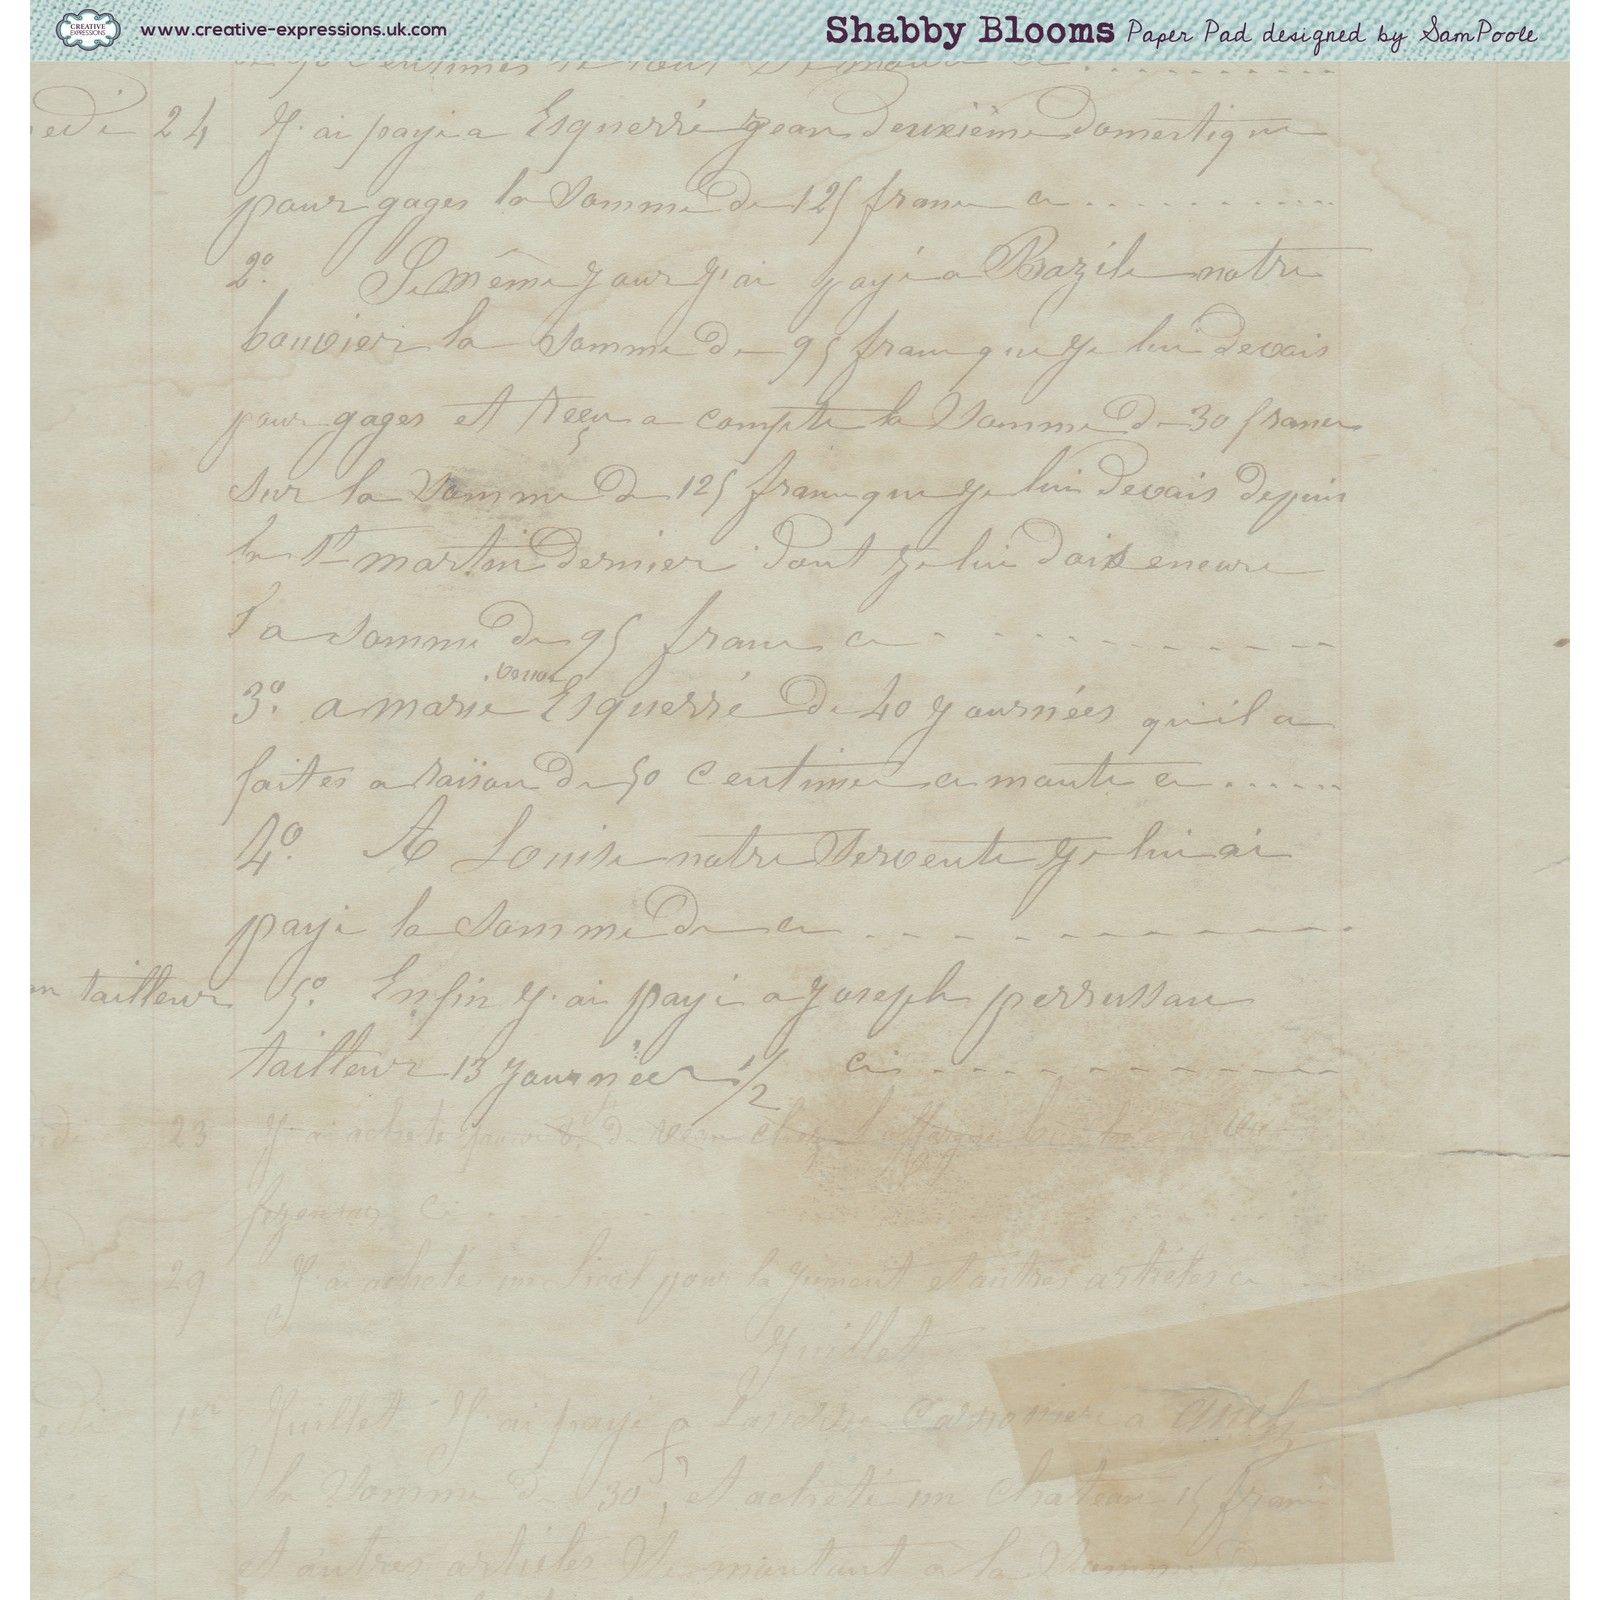 www.creative-expressions.uk.com
CREATIVE EXPRESSIONS
Shabby Blooms Paper Pad designed by Sam Poole
24 J'ai payé a Esquerré Jean deuxième domestique
pour gages la somme de 125 francs ci
2º. Le même jour j'ai payé a Bazile notre
bouvier la somme de 95 franc que je lui devais
pour gages et Reçu a compte la somme de 30 francs
sur la somme de 125 franc que je lui devais depuis
la St martin dernier dont je lui dois encore
la somme de 95 franc ci
3º. a marie Esquerré de 40 journées qu'il a
faites a raison de 50 centimes ci monte ci
4º. A Louise notre servente je lui ai
payé la somme de ci
tailleur 5º. Enfin j'ai payé a joseph perrussau
tailleur 13 journéer 1/2 ci
23 J'ai acheté
ci
29 J'ai acheté un pour la jument et autres articles ci
Juillet
1er Juillet J'ai payé a
la somme de 30 f, et acheté un chateau 15 franc
et autres articles montant à la somme de